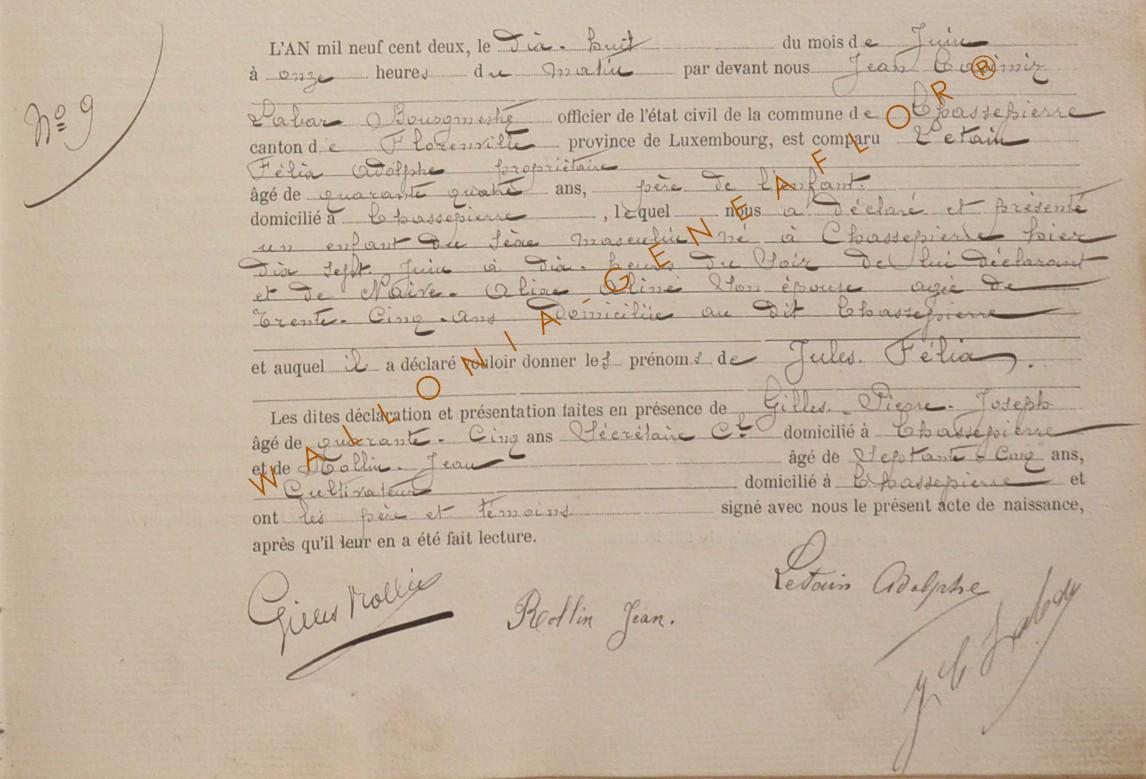 Nº 9
L'AN mil neuf cent deux, le Dix-huit du mois de Juin
à onze heures du Matin par devant nous Jean Casimir
Labar Bourgmestre officier de l'état civil de la commune de Chassepierre
canton de Florenville province de Luxembourg, est comparu Letain
Félix Adolphe propriétaire
âgé de quarante quatre ans, père de l'enfant.
domicilié à Chassepierre, lequel nous a déclaré et présenté
un enfant du sèxe masculin né à Chassepierre hier
dix sept Juin à dix heures du Soir de lui déclarant
et de Naive. Alice Aline Son épouse agée de
trente-Cinq ans Domiciliée au dit Chassepierre
et auquel il a déclaré vouloir donner les prénoms de Jules Félix.
Les dites déclaration et présentation faites en présence de Gilles Pierre Joseph
âgé de quarante-Cinq ans Sécrétaire Cl domicilié à Chassepierre
et de Rollin Jean âgé de Septante-Cinq ans,
Cultivateur domicilié à Chassepierre et
ont les père et témoins signé avec nous le présent acte de naissance,
après qu'il leur en a été fait lecture.
Gilles Rollin
Rollin Jean.
Letain Adolphe
J. C. Labar
WALLONIA-GENEAFLOR®